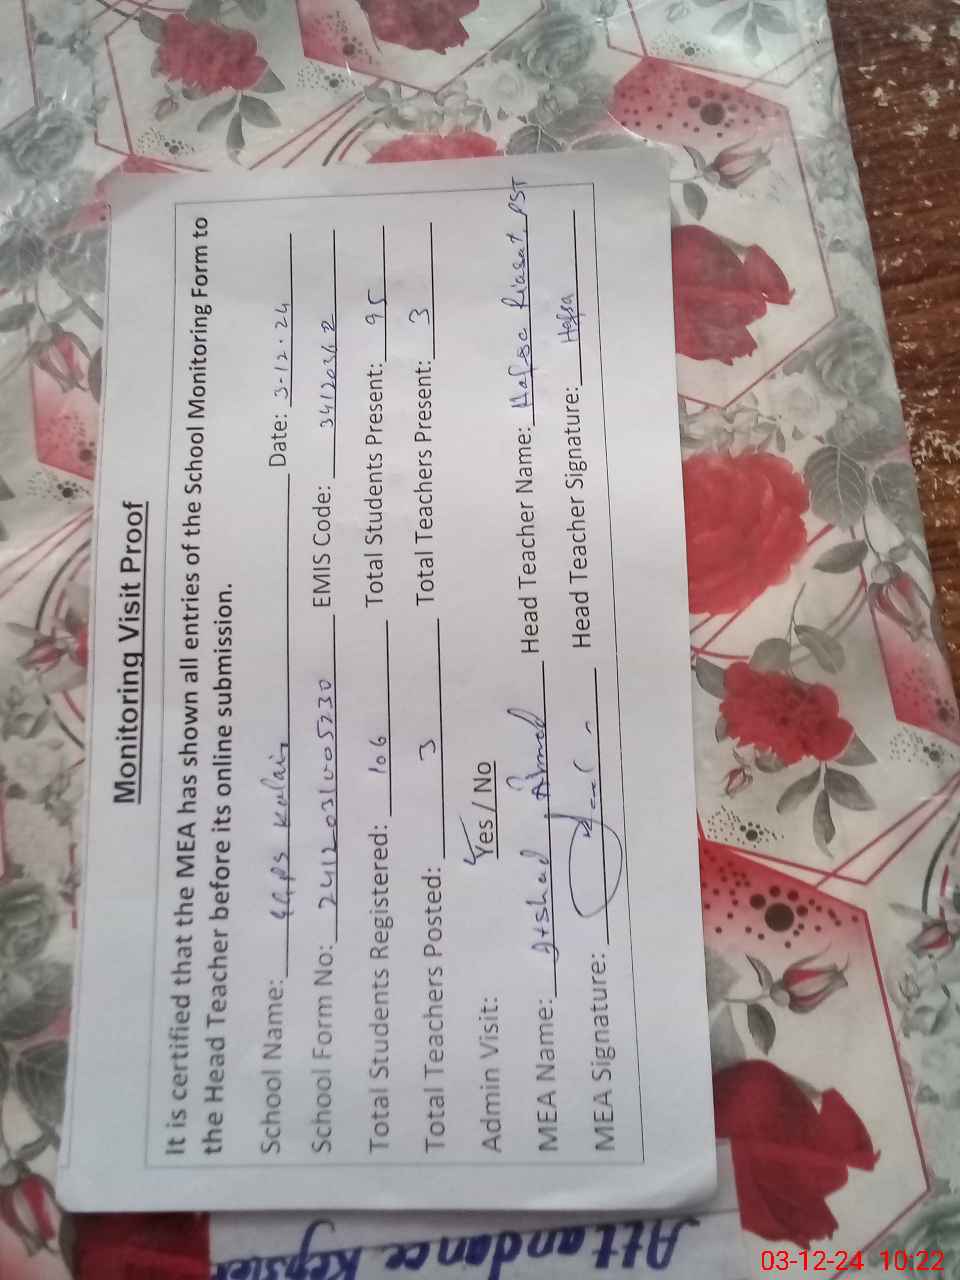 Monitoring Visit Proof
It is certified that the MEA has shown all entries of the School Monitoring Form to
the Head Teacher before its online submission.
School Name: GGPS Kalai Date: 3-12-24
School Form No: EMIS Code:
Total Students Registered: 106 Total Students Present: 95
Total Teachers Posted: 3 Total Teachers Present: 3
Admin Visit: Yes / No
MEA Name: Arshad Ahmed Head Teacher Name: Riasat PST
MEA Signature: Head Teacher Signature: Hafsa
Attandance Regster
03-12-24 10:22